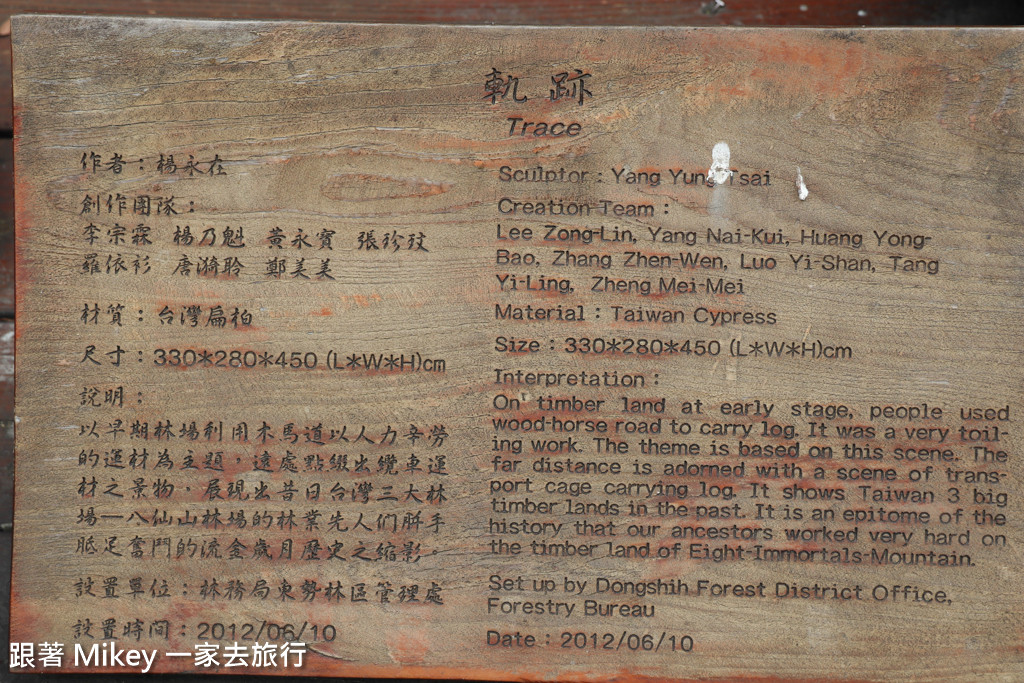 軌跡
Trace
作者：楊永在
創作團隊：
李宗霖 楊乃魁 黃永寶 張珍玟
羅依衫 唐漪聆 鄭美美
材質：台灣扁柏
尺寸：330*280*450 (L*W*H)cm
說明：
以早期林場利用木馬道以人力辛勞
的運材為主題，遠處點綴出纜車運
材之景物，展現出昔日台灣三大林
場—八仙山林場的林業先人們胼手
胝足奮鬥的流金歲月歷史之縮影。
設置單位：林務局東勢林區管理處
設置時間：2012/06/10
Sculptor : Yang Yung Tsai
Creation Team :
Lee Zong-Lin, Yang Nai-Kui, Huang Yong-
Bao, Zhang Zhen-Wen, Luo Yi-Shan, Tang
Yi-Ling, Zheng Mei-Mei
Material : Taiwan Cypress
Size : 330*280*450 (L*W*H)cm
Interpretation :
On timber land at early stage, people used
wood-horse road to carry log. It was a very toil-
ing work. The theme is based on this scene. The
far distance is adorned with a scene of trans-
port cage carrying log. It shows Taiwan 3 big
timber lands in the past. It is an epitome of the
history that our ancestors worked very hard on
the timber land of Eight-Immortals-Mountain.
Set up by Dongshih Forest District Office,
Forestry Bureau
Date : 2012/06/10
跟著 Mikey 一家去旅行